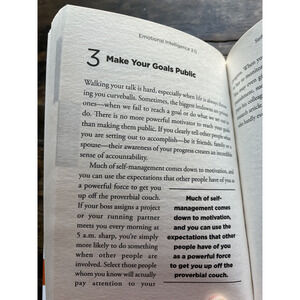 Emotional Intelligence 2.0
3 Make Your Goals Public
Walking your talk is hard, especially when life is always throw-
ing you curveballs. Sometimes, the biggest letdowns are private
ones—when we fail to reach a goal or do what we set out to
do. There is no more powerful motivator to reach your goals
than making them public. If you clearly tell other people what
you are setting out to accomplish—be it friends, family, or a
spouse—their awareness of your progress creates an incredible
sense of accountability.
Much of self-management comes down to motivation, and
you can use the expectations that other people have of you as
a powerful force to get you
up off the proverbial couch.
If your boss assigns a project
or your running partner
meets you every morning at
5 a.m. sharp, you're simply
more likely to do something
when other people are
involved. Select those people
whom you know will actually
pay attention to your
Much of self-
management comes
down to motivation,
and you can use the
expectations that other
people have of you
as a powerful force
to get you up off the
proverbial couch.